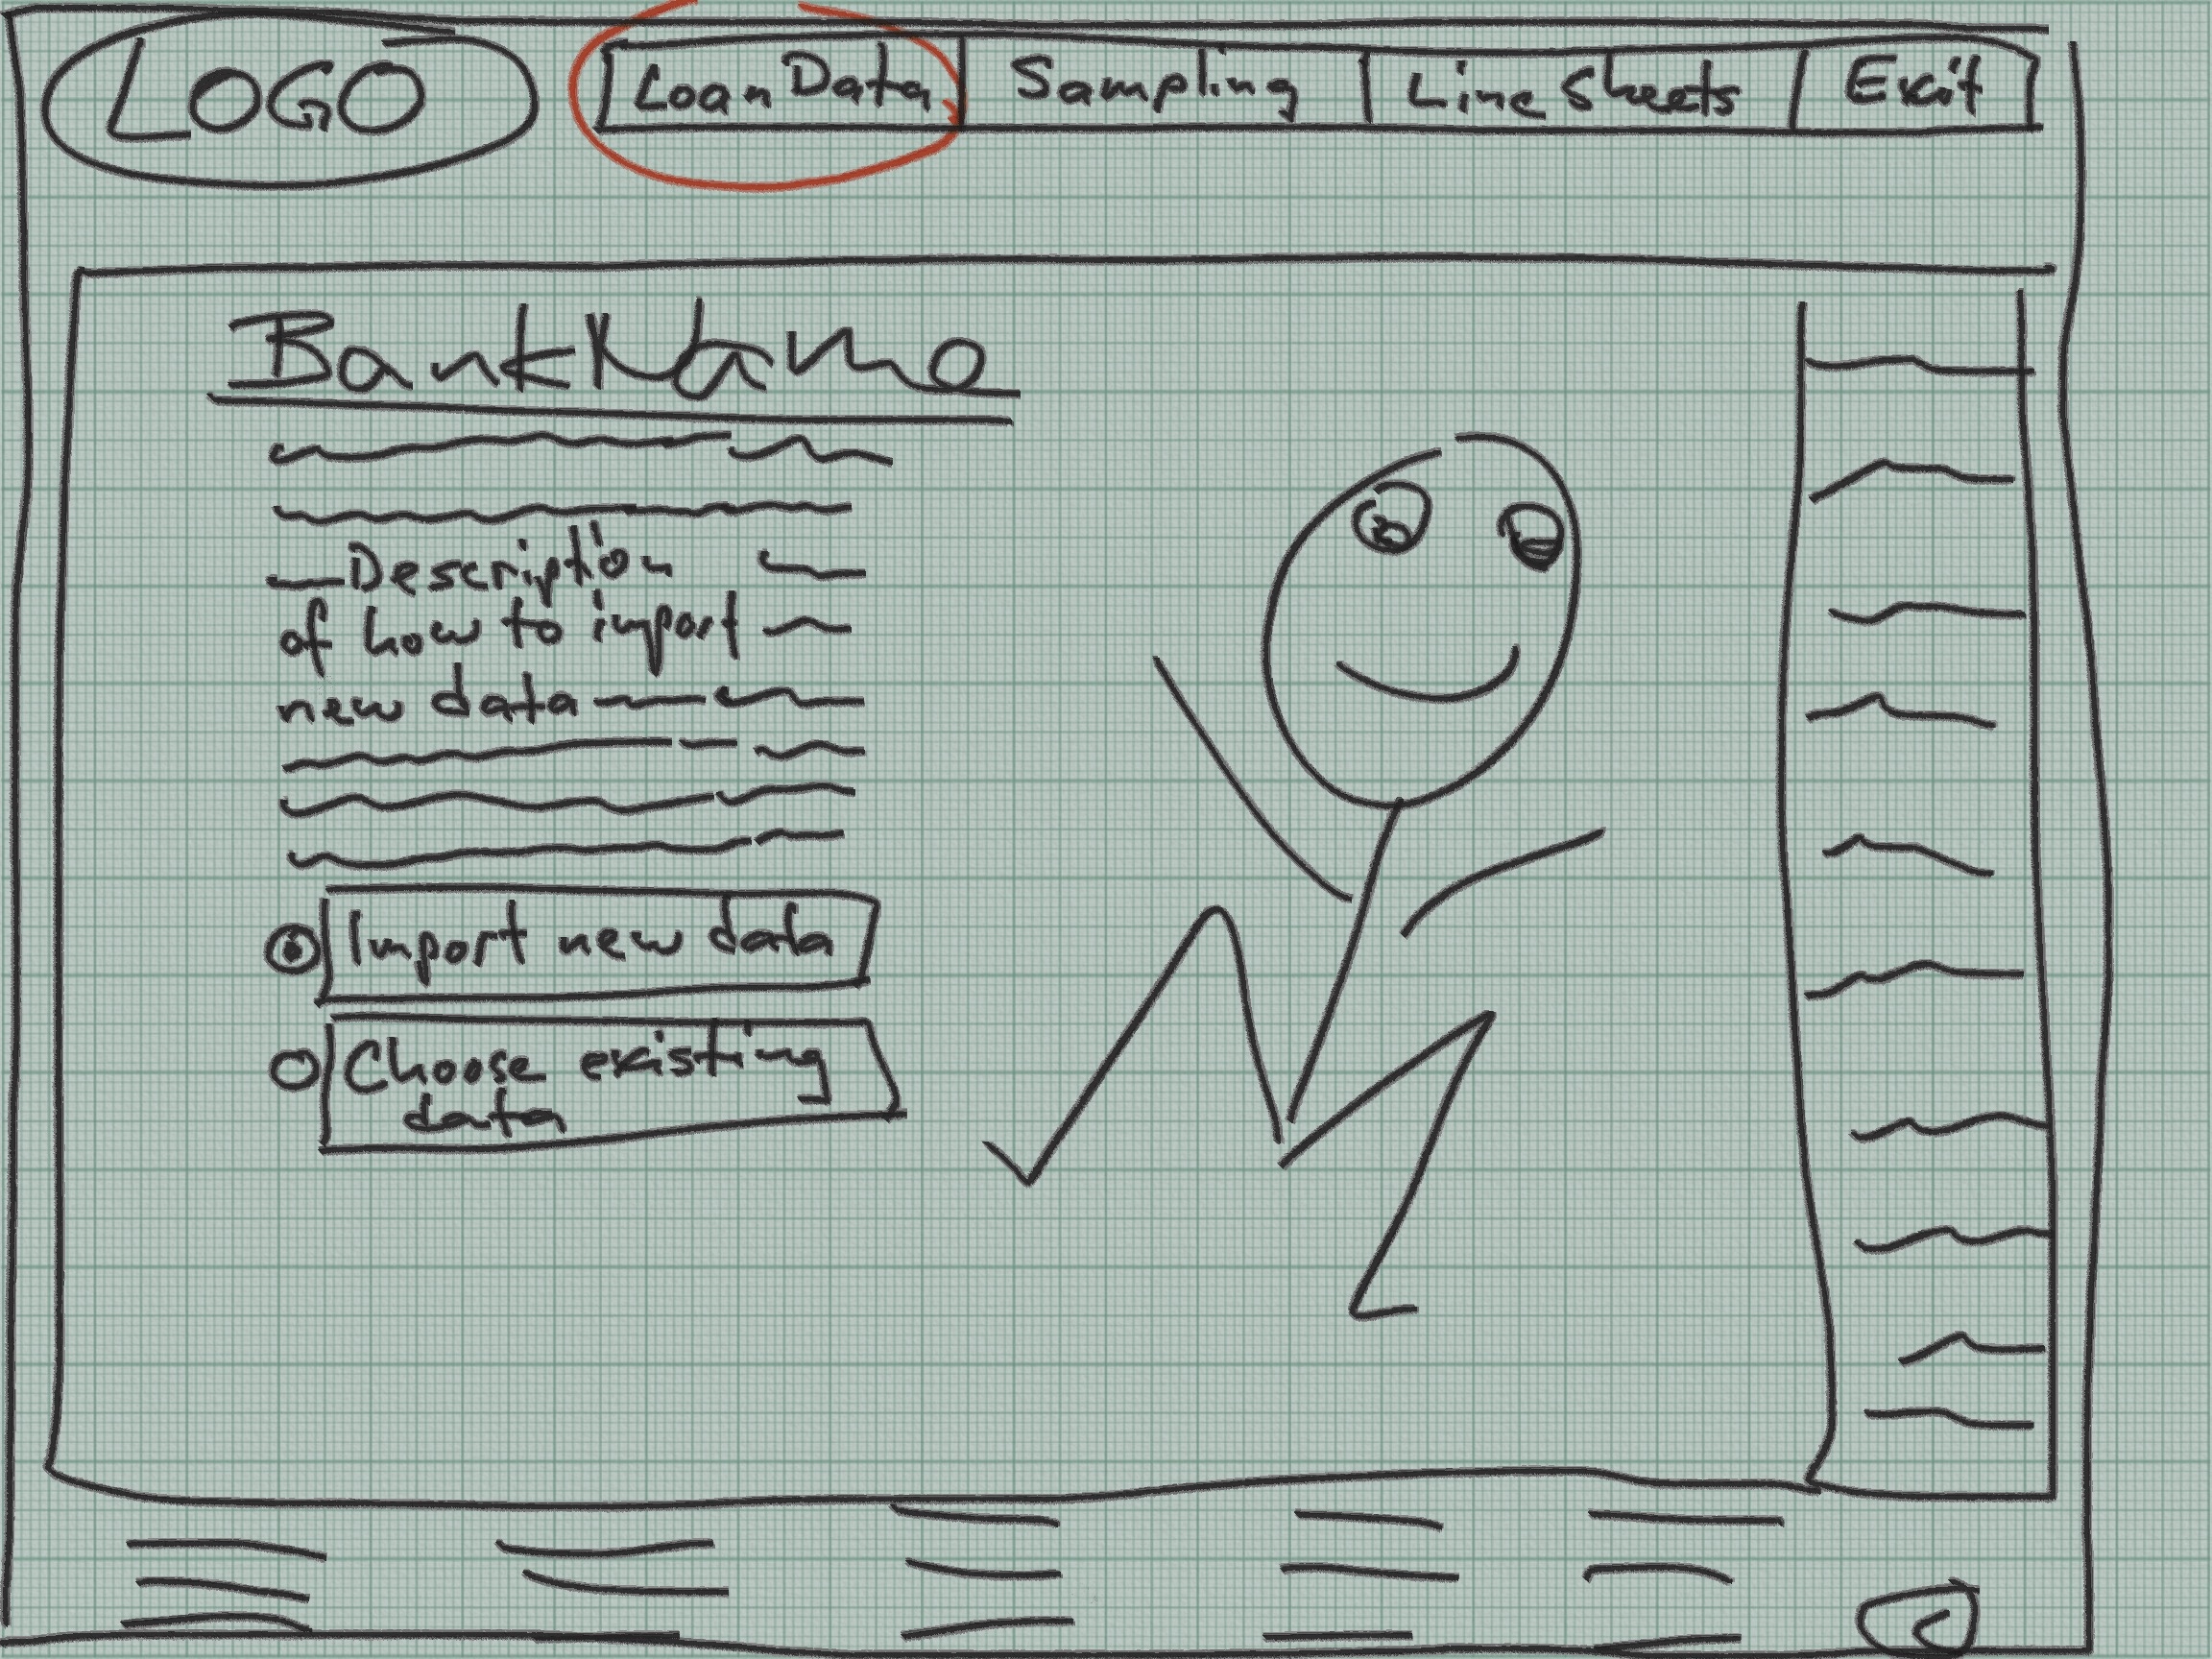 LOGO
Loan Data
Sampling
Line Sheets
Exit
Bank Name
Description
of how to import
new data
Import new data
Choose existing
data
C